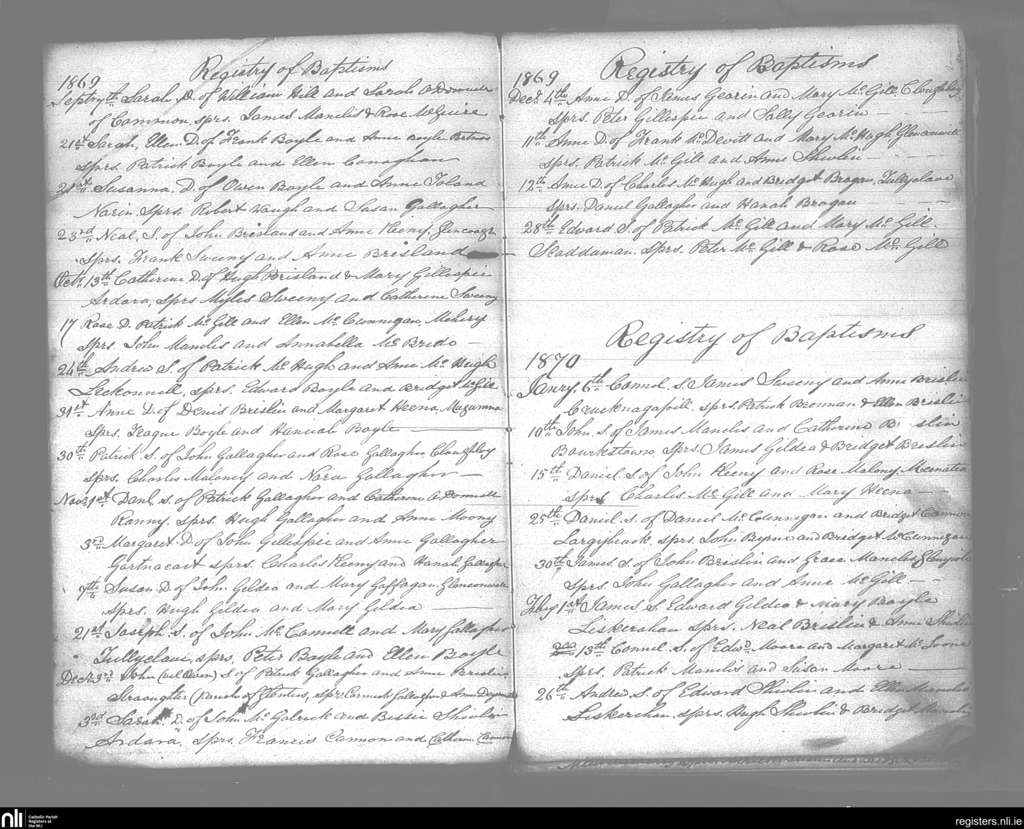 Registry of Baptisms
1869
Sarah D. of William Hill and Sarah O'Donnell
of Common, sprs. James Manelis & Rose McGuire
21st Sarah, Ellen D. of Frank Boyle and Anne Boyle
Sprs. Patrick Boyle and Ellen Conaghan
21st Susanna, D. of Owen Boyle and Anne Toland
Narin. Sprs. Robert Vaugh and Susan Gallagher
23rd Neal, S. of John Brisland and Anne Keeny,
Sprs. Frank Sweeny and Anne Brisland
Octr. 13th Catherine D. of Hugh Brisland & Mary Gillespie
Ardara, Sprs Myles Sweeny and Catherine Sweeny
17 Rose D. Patrick Mc Gill and Ellen Mc Cunnigan, Meheny
Sprs John Manelis and Annabella Mc Bride
24th Andrew S. of Patrick Mc Hugh and Anne Mc Hugh
Leckonnell, sprs. Edward Boyle and Bridget McGill
31st Anne D. of Denis Brislin and Margaret Heena,
Sprs. Teague Boyle and Hannah Boyle
30th Patrick S. of John Gallagher and Rose Gallagher Cloughboy
Sprs. Charles Maloney and Nora Gallagher
Novr. 1st Danl. S. of Patrick Gallagher and Catherine O'Donnell
Ranny. Sprs. Hugh Gallagher and Anne Mooney
3rd Margaret D. of John Gillespie and Anne Gallagher
sprs. Charles Keeny and Hanah Gallagher
7th Susan D. of John Gildea and Mary Gaffagan Glenconwell
Sprs. Hugh Gildea and Mary Gildea
21st Joseph S. of John Mc Connell and Mary Gallagher
Tullyclave, sprs. Peter Boyle and Ellen Boyle
Decr. 3rd John (vel Owen) S. of Patrick Gallagher and Anne
(Parish of Glenties, sprs. Connell Gallagher & Anne
3rd Sarah D. of John Mc Golrick and Bessie Shovlin
Ardara, Sprs. Francis Cannon and Catherine Cannon
Registry of Baptisms
1869
Decr. 4th Anne D. of James Gearin and Mary Mc Gill, Cloughboy
Sprs. Peter Gillespie and Sally Gearin
11th Anne D. of Frank Mc Devitt and Mary Mc Hugh Glenconwell
Sprs. Patrick Mc Gill and Anne Shovlin
12th Anne D. of Charles Mc Hugh and Bridget Brogan, Tullyclave
Sprs. Daniel Gallagher and Hanah Brogan
28th Edward S of Patrick Mc Gill and Mary Mc Gill.
Sladdawan. Sprs. Peter Mc Gill & Rose Mc Gill
Registry of Baptisms
1870
Janry. 6th Connel. S. James Sweeny and Anne Brislin
sprs. Patrick Brennan & Ellen Brislin
10th John. S. of James Manelis and Catherine Brislin
Bourkstown, Sprs. James Gildea & Bridget Brislin
15th Daniel. S. of John Keeny and Rose Maloney,
Sprs Charles Mc Gill and Mary Heena
25th Daniel. S. of Daniel Mc Cunnigan and Bridget Cannon
sprs. John Byrne and Bridget McCunnigan
30th James. S. of John Brislin and Grace Manelis,
Sprs. John Gallagher and Anne Mc Gill
1st James S. Edward Gildea & Mary Boyle
Liskerahan sprs. Neal Brislin & Anne
13th Connel. S. of Edwd. Moore and Margaret
Sprs. Patrick Manelis and Susan Moore
26th Andrew S. of Edward Shovlin and Ellen
Liskerahan. sprs. Hugh Shovlin & Bridget
nli
Catholic Parish
Registers at
the NLI
registers.nli.ie